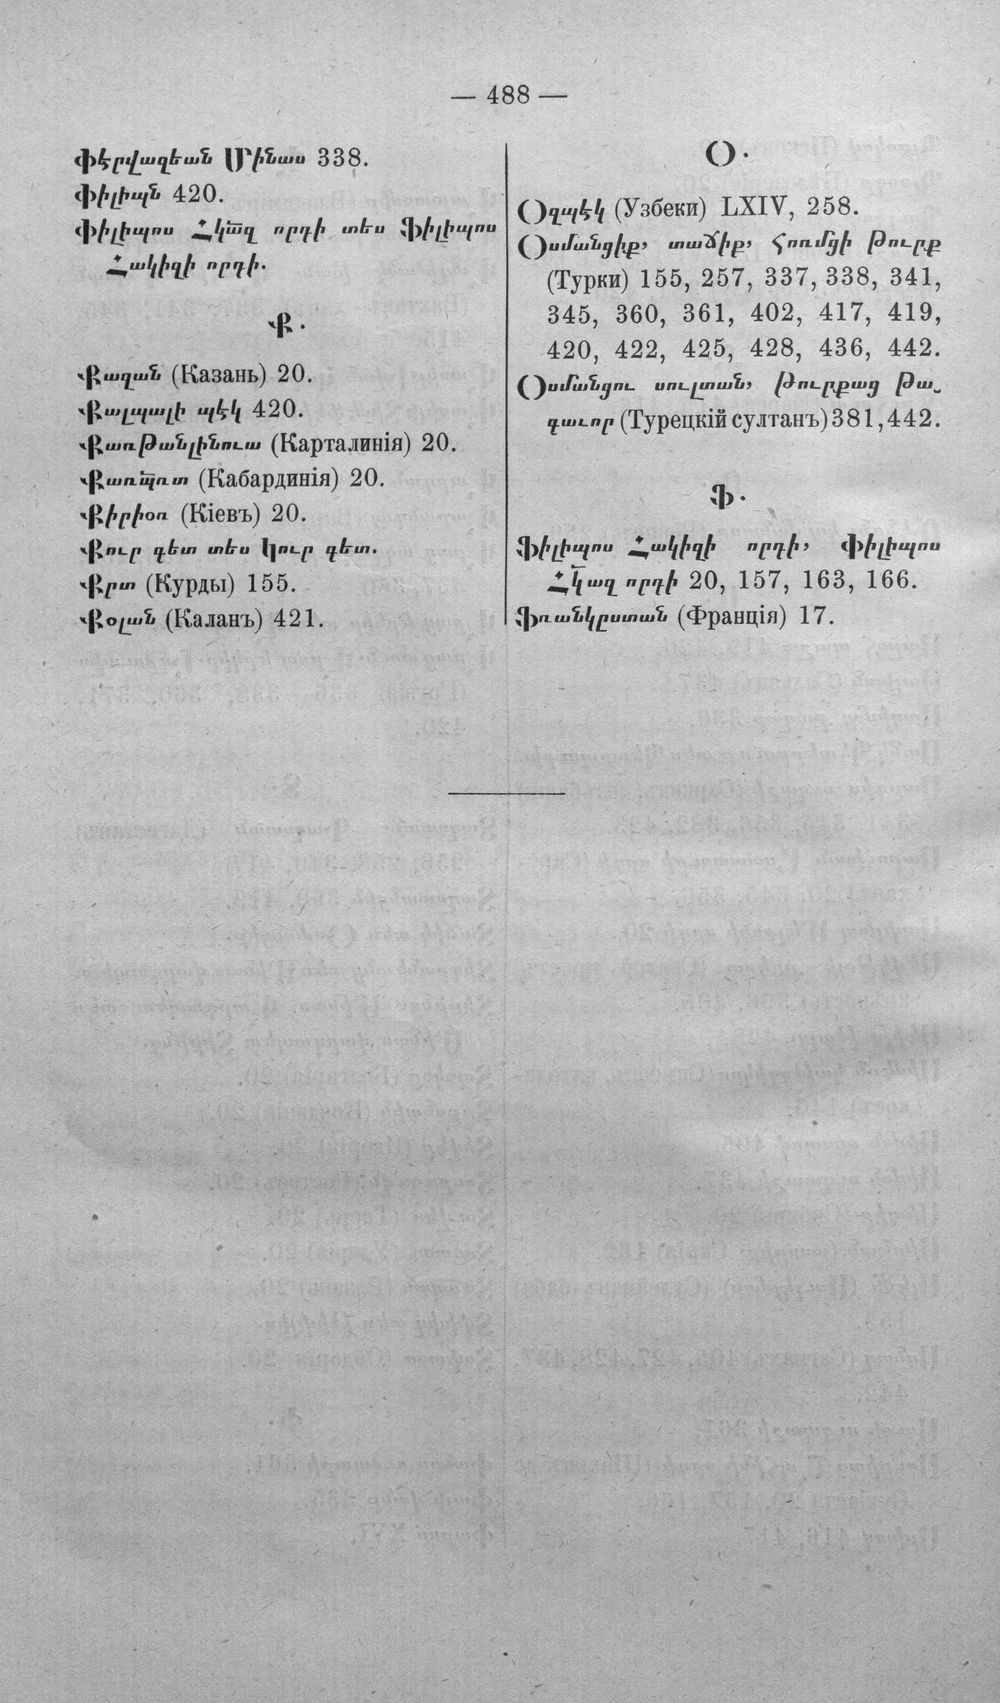 — 488 —
Փէրվազեան Մինաս 338.
Փիլիպն 420.
Փիլիպոս Հկազ որդի տես Ֆիլիպոս
Հակիզի որդի.
Ք.
Քազան (Казань) 20.
Քալպալի պէկ 420.
Քառթանլինուա (Карталинія) 20.
Քառպռտ (Кабардинія) 20.
Քիրիօռ (Кіевъ) 20.
Քուր գետ տես Կուր գետ.
Քրտ (Курды) 155.
Քօլան (Каланъ) 421.
Օ.
Օզպէկ (Узбеки) LXIV, 258.
Օսմանցիք, տաճիք, Հոռմցի Թուրք
(Турки) 155, 257, 337, 338, 341,
345, 360, 361, 402, 417, 419,
420, 422, 425, 428, 436, 442.
Օսմանցու սուլտան, Թուրքաց Թա֊
գաւոր (Турецкій султанъ) 381, 442.
Ֆ.
Ֆիլիպոս Հակիզի որդի, Փիլիպոս
Հկազ որդի 20, 157, 163, 166.
Ֆռանկըստան (Франція) 17.